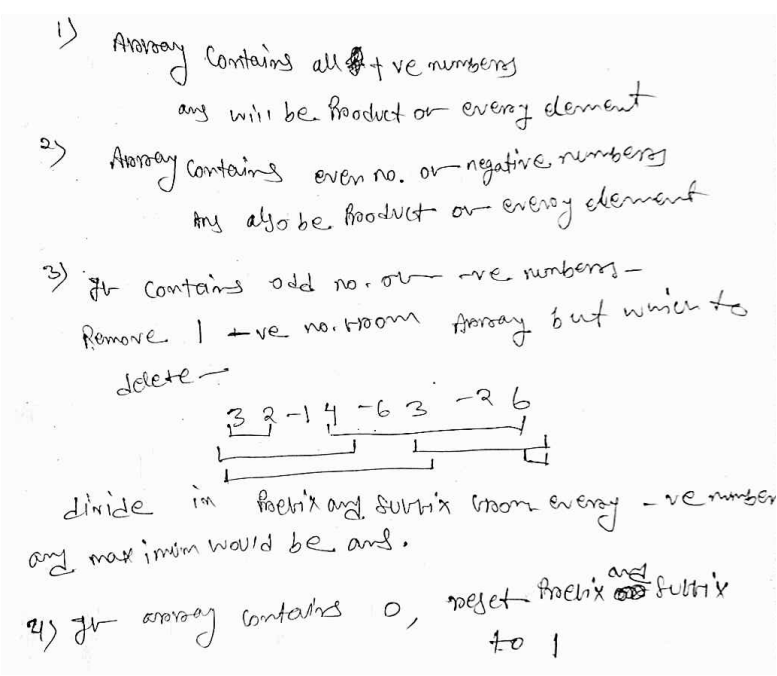 1) Array Contains all +ve numbers
ans will be Product of every element
2) Array contains even no. of negative numbers
Ans also be Product of every element
3) If contains odd no. of -ve numbers -
Remove 1 -ve no. from Array but which to
delete -
3 2 -1 4 -6 3 -2 6
divide in Prefix and Suffix from every -ve number
and maximum would be ans.
4) If array contains 0, reset Prefix and Suffix
to 1